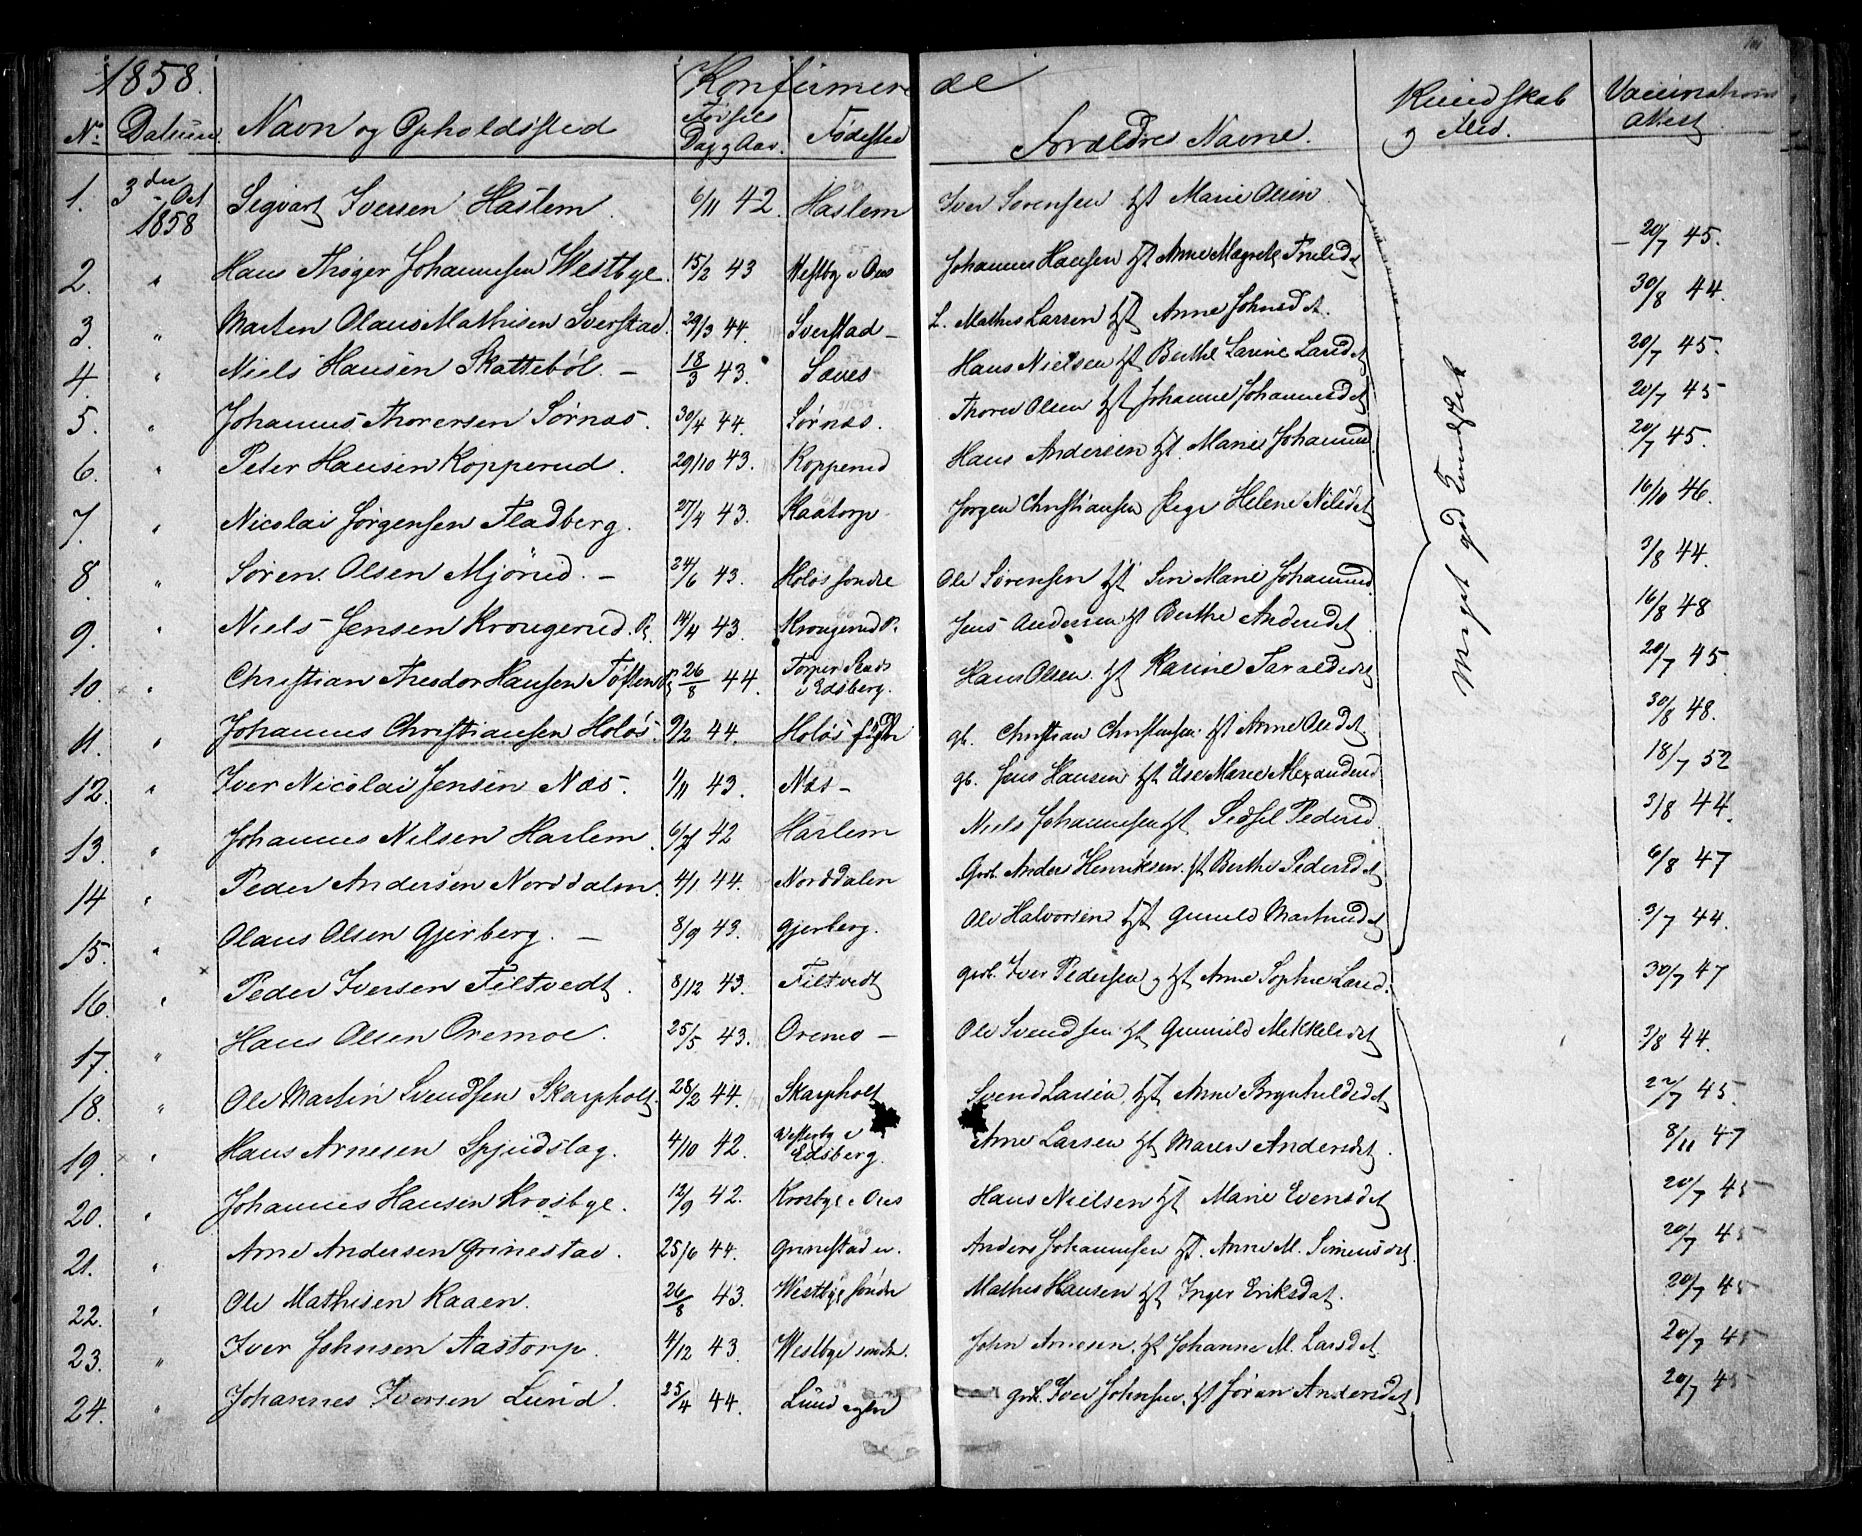 1858. Konfirmerede
No. Datum Navn og Opholdssted Fødsels Dag og Aar. Fødested Forældres Navne. Kundskab og Flid. Vaccinations attest
1. 3die Oct 1858 Sigvart Iversen Haslem. 6/11 42. Haslem Iver Sørensen Hst Marie Olsen 20/7 45.
2. " Hans Thøger Johannesen Westbye. 15/2 43 Westby i Aas Johannes Hansen Hst Anne Magrete 30/8 44.
3. " Marten Olaus Mathisen Sverstad. 29/3 44. Sverstad L. Mathis Larsen Hst Anne Johnsdt. 20/7 45.
4. " Niels Hansen Skattebøl. 18/3 43. Saues Hans Nielsen Hst Berthe Larine Larsdt 20/7 45
5. " Johannes Thorersen Sørnæs. 30/4 44. Sørnæs. Thorer Olsen Hst Johanne Johannesdt 20/7 45.
6. " Peter Hansen Kopperud. 29/10 43. Kopperud Hans Andersen Hst. Marie Johannesd 16/10 46.
7. " Nicolai Jørgensen Fladberg. 27/4 43. Kaatorp Jørgen Christiansen Pige Helene Nilsdt 3/8 44.
8. " Søren Olsen Mjørud. 24/6 43. Holøs søndre Ole Sørensen Hst Siri Marie Johannesd. 16/8 48
9. " Niels Jensen Krougerud. Pl. 14/4 43. Krougerud P. Jens Andersen Hst Berthe Andersdt 20/7 45
10. " Christian Theodor Hansen Tøften 26/8 44. Torper Stads i Edsberg. Hans Olsen. Hst Karine Taraldsdt 30/8 48.
11. " Johannes Christiansen Holøs. 9/2 44. Holøs gb. Christian Christensen Hst Anne Olsdt. 18/7 52
12. " Iver Nicolai Jensen Næs. 1/11 43. Næs gb. Jens Hansen Hst Else Marie Alexandersd 3/8 44.
13. " Johannes Nilsen Harlem. 6/7 42 Harlem Niels Johannesen Hst Sidsel Pedersd. 6/8 47
14 " Peder Andersen Norddalen. 4/1 44. Norddalen Grb. Anders Henriksen. Hst Berthe Pedersdt 3/7 44.
15. " Olaus Olsen Gjerberg. 8/9 43. Gjerberg. Ole Halvorsen Hst Gunild Martinsdt 30/7 47
16. " Peder Iversen Filtvedt. 8/12 43. Filtvedt Grb. Iver Pedersen og Hst Anne Sophie Larsd. 3/8 44.
17. " Hans Olsen Oremoe. 25/5 43. Oremo Ole Svendsen Hst Gunnild Mekkelsdt 22/7 45.
18. " Ole Martin Svendsen Skarpholt 28/2 44. Skarpholt Svend Larsen Hst Anne Brynhildsdt 8/11 47
19. " Hans Arnesen Spjudslag. 4/10 42. Vesterby i Edsberg. Arne Larsen Hst Maren Andersdt. 20/7 45
20. " Johannes Hansen Krosbye. 12/9 42. Krosbye i Aas Hans Nielsen Hst Marie Evensdt 20/7 45
21. " Arne Andersen Grinestad. 25/6 44. Grinestad n. Anders Johannesen Hst. Anne M. Simensdt. 20/7 45
22. " Ole Mathisen Kaaen. 26/8 43. Westbye søndre Mathis Hansen Hst Inger Eriksdat. 20/7 45
23. " Iver Johnsen Aastorp. 4/12 43. Westbye søndre. John Arnesen. Hst Johanne M. Larsdt. 20/7 45
24. " Johannes Iversen Lund. 25/4 44. Lund Grb. Iver Johnsen. Hst Jøran Andersdt
Meget god Kundskab